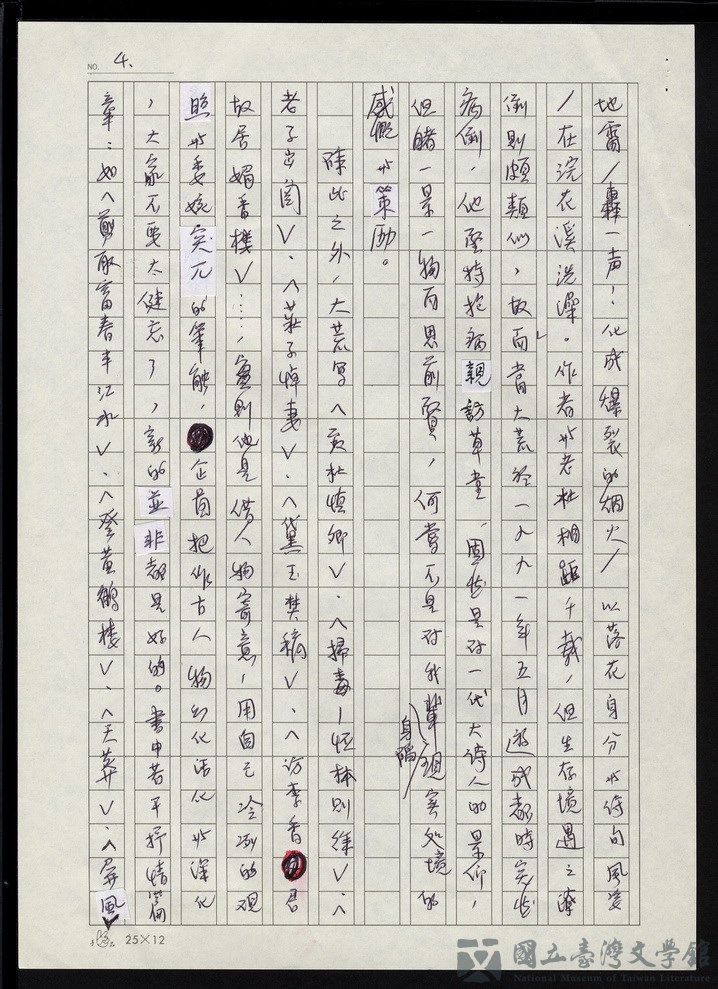 NO. 4.
地雷／轟一声！化成爆裂的烟火／以落花身分与诗句風姿
／在浣花溪洗澡。作者与老杜相距千載，但生存境遇之潦
倒則頗類似，故而當大荒於一九九一年五月遊成都時突然
病倒，他堅持抱病親訪草堂，固然是对一代大诗人的景仰，
但睹一景一物而思前賢，何嘗不是对我輩身陷現实处境的
感慨与策励。
除此之外，大荒写〈夜杜慎卿〉、〈掃毒—恒林則徐〉、〈
老子出関〉、〈莊子悼妻〉、〈黛玉焚稿〉、〈访李香君
故居媚香樓〉……，實則他是借人物寄意，用自己冷冽的观
照与委婉突兀的筆触，企图把作古人物幻化活化与深化
，大家不要太健忘了，新的並非都是好的。書中若干抒情篇
章：如〈剪取富春半江水〉、〈登黄鶴樓〉、〈天葬〉、〈屏風
25×12
國立臺灣文學館
National Museum of Taiwan Literature